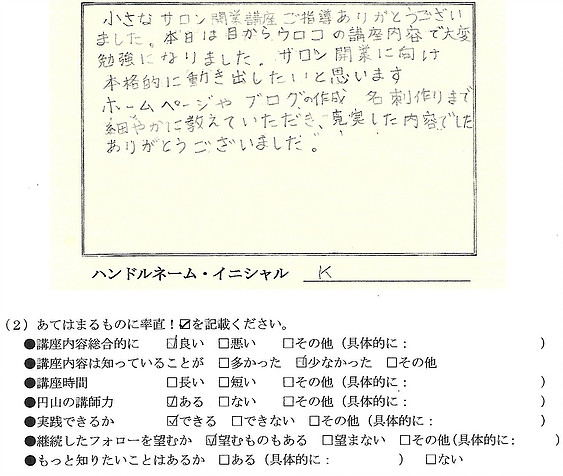 小さなサロン開業講座ご指導ありがとうござい
ました。本日は目からウロコの講座内容で大変
勉強になりました。サロン開業に向け
本格的に動き出したいと思います
ホームページや ブログの作成 名刺作りまで
細やかに教えていただき、充実した内容でした
ありがとうございました。
ハンドルネーム・イニシャル K
(2)あてはまるものに率直!☑を記載ください。
●講座内容総合的に ☑良い □悪い □その他(具体的に: )
●講座内容は知っていることが □多かった ☑少なかった □その他
●講座時間 □長い □短い □その他(具体的に: )
●円山の講師力 ☑ある □ない □その他(具体的に: )
●実践できるか ☑できる □できない □その他(具体的に: )
●継続したフォローを望むか ☑望むものもある □望まない □その他(具体的に: )
●もっと知りたいことはあるか □ある(具体的に: ) □ない